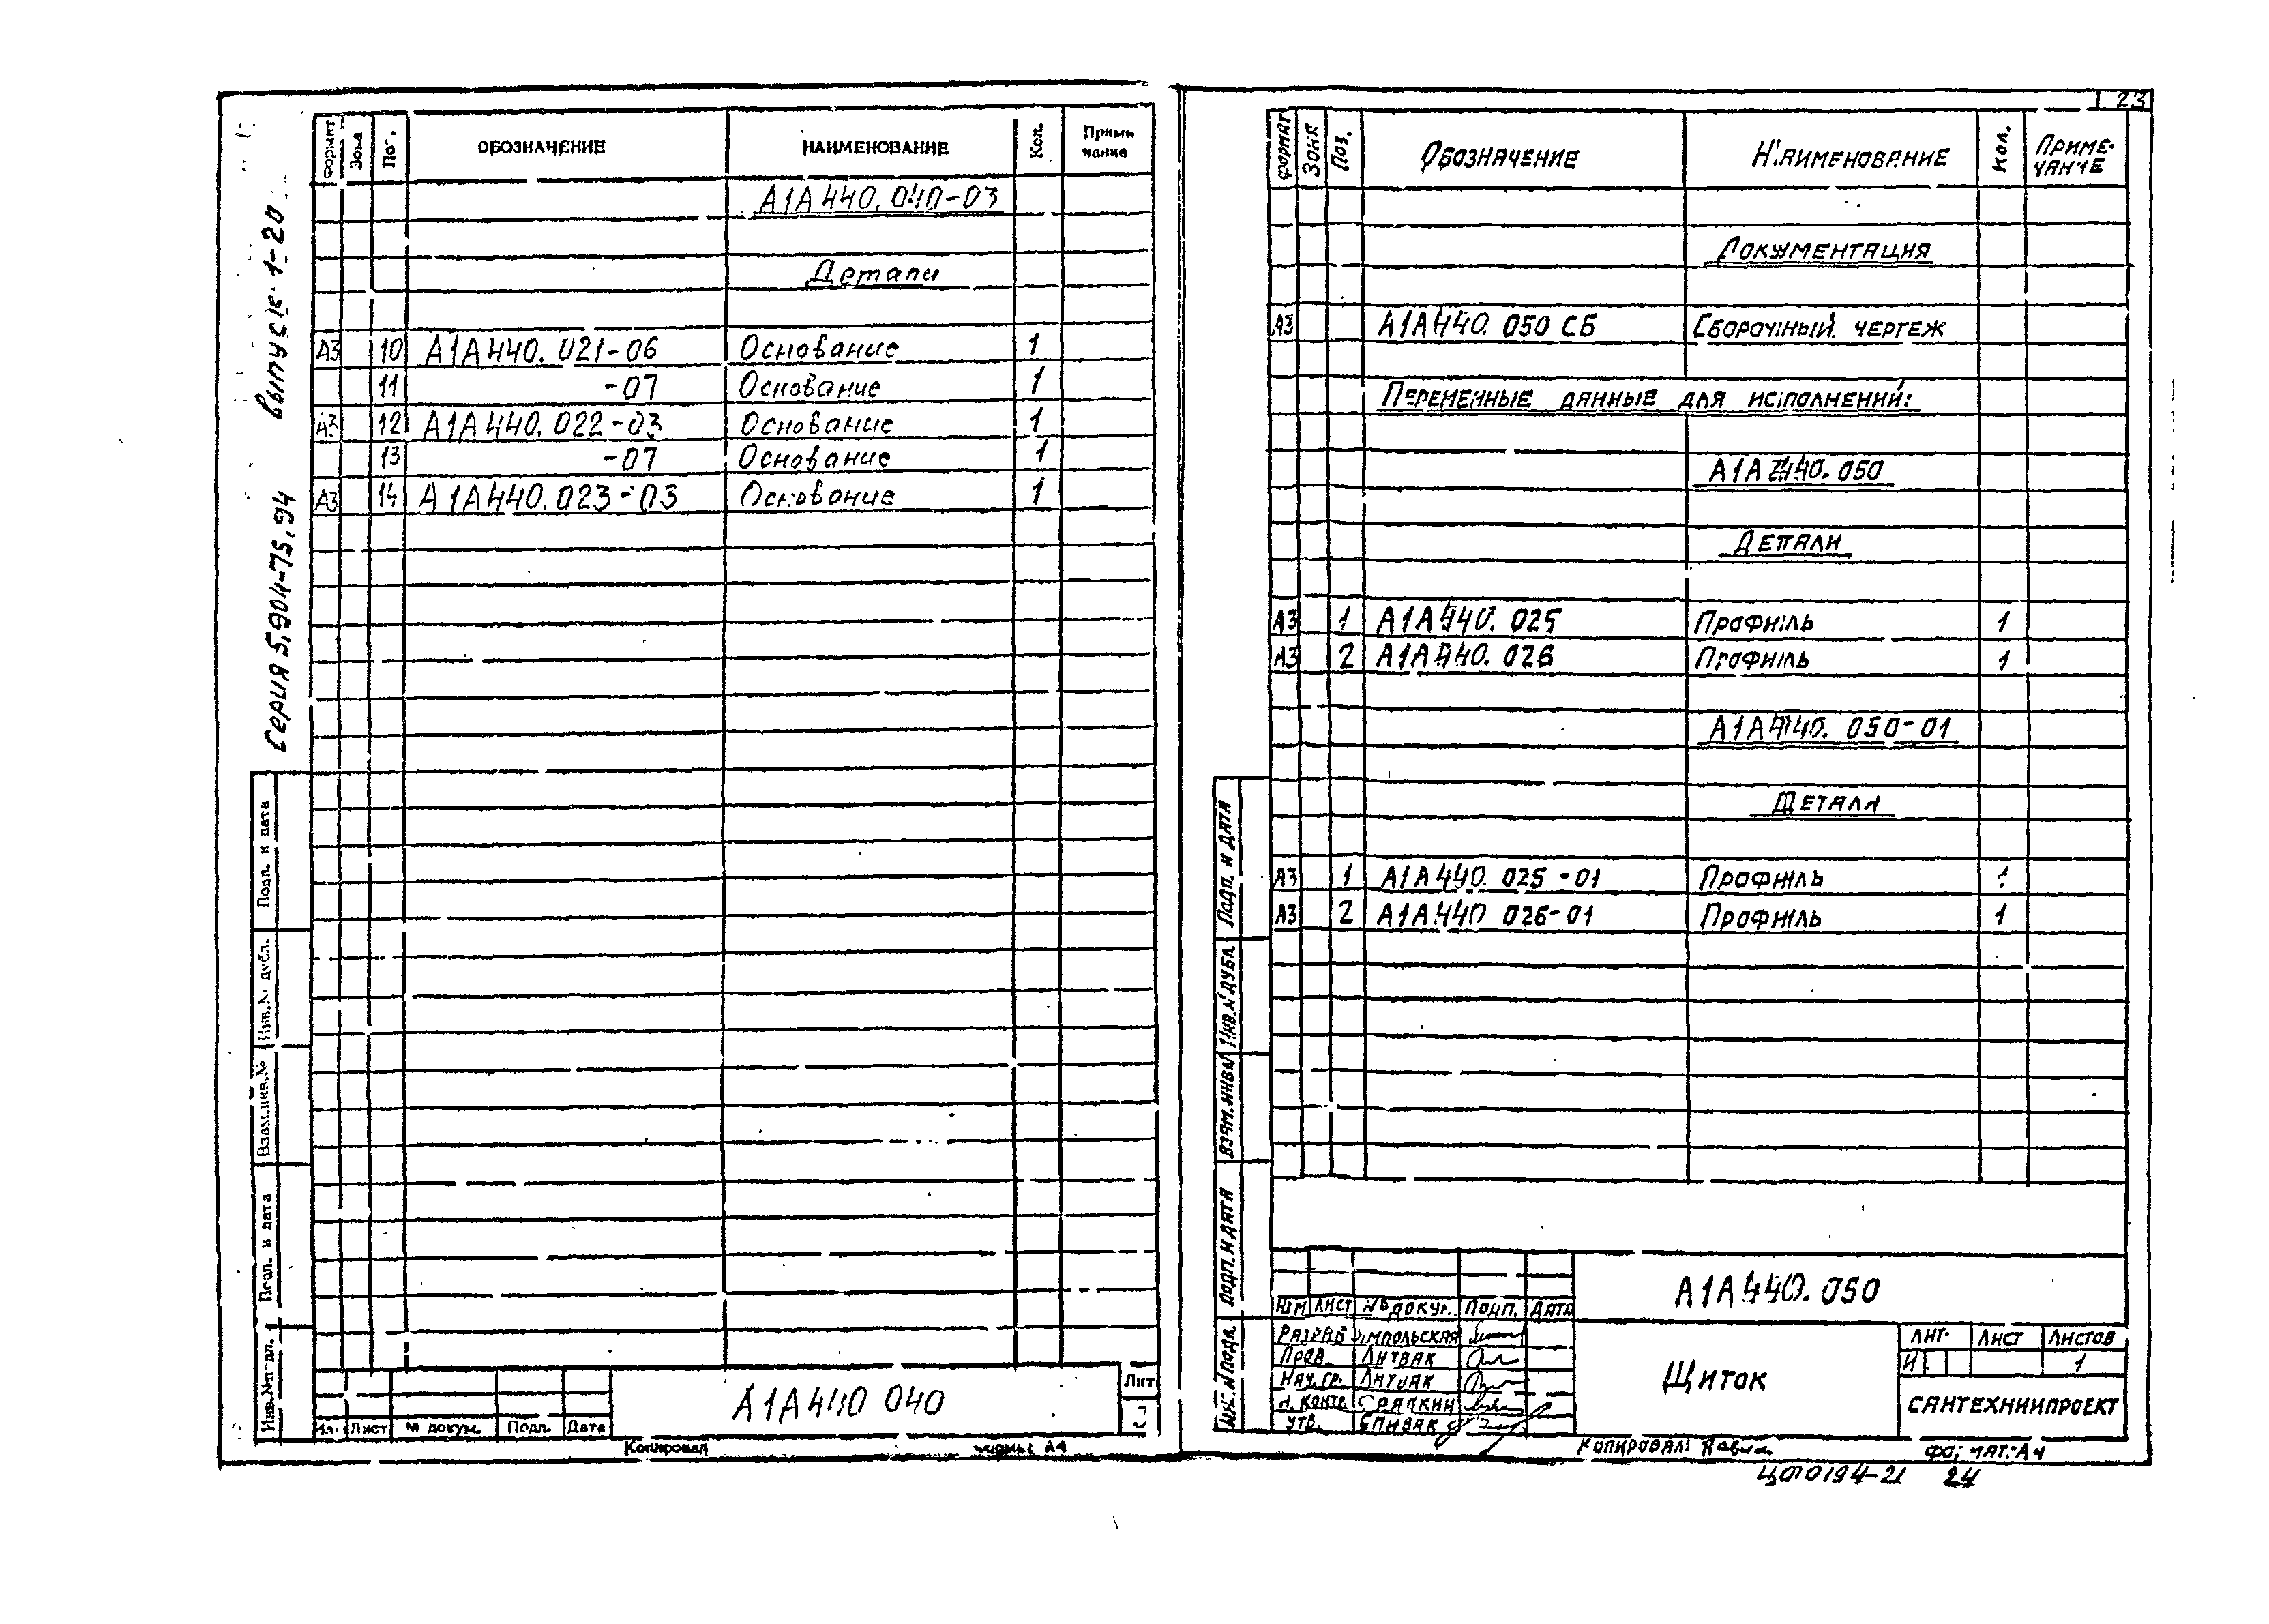 23
Серия 5.904-75.94 выпуск 1-20
Формат Зона ОБОЗНАЧЕНИЕ НАИМЕНОВАНИЕ Кол. Приме чание
А1А440.040-03
Детали
А3 10 А1А440.021-06 Основание 1
11 -07 Основание 1
А3 12 А1А440.022-03 Основание 1
13 -07 Основание 1
А3 14 А1А440.023-03 Основание 1
Подп. и дата
Инв.№ дубл.
Взам.инв.№
Подп. и дата
Инв.№ подл.
Лист № докум. Подп. Дата
А1А440 040
Лит
3
Копировал А4
ФОРМАТ ЗОНА ПОЗ. ОБОЗНАЧЕНИЕ НАИМЕНОВАНИЕ КОЛ. ПРИМЕ-ЧАНИЕ
ДОКУМЕНТАЦИЯ
А3 А1А440.050 СБ СБОРОЧНЫЙ ЧЕРТЕЖ
ПЕРЕМЕННЫЕ ДАННЫЕ ДЛЯ ИСПОЛНЕНИЙ:
А1А440.050
ДЕТАЛИ
А3 1 А1А440.025 ПРОФИЛЬ 1
А3 2 А1А440.026 ПРОФИЛЬ 1
А1А440.050-01
ДЕТАЛИ
А3 1 А1А440.025-01 ПРОФИЛЬ 1
А3 2 А1А440 026-01 ПРОФИЛЬ 1
ПОДП. И ДАТА
ИНВ.N ДУБЛ.
ВЗАМ.ИНВ.N
ПОДП. И ДАТА
ИНВ.N ПОДЛ.
ИЗМ ЛИСТ № ДОКУМ. ПОДП. ДАТА
А1А440.050
РАЗРАБ ЯМПОЛЬСКАЯ
ПРОВ. ЛИТВАК
НАЧ.ГР. ЛИТВАК
Н.КОНТР.
УТВ. СПИВАК
ЩИТОК
ЛИТ. ЛИСТ ЛИСТОВ
И 1
САНТЕХНИИПРОЕКТ
КОПИРОВАЛ: ФОРМАТ: А4
ЦФ0194-21 24